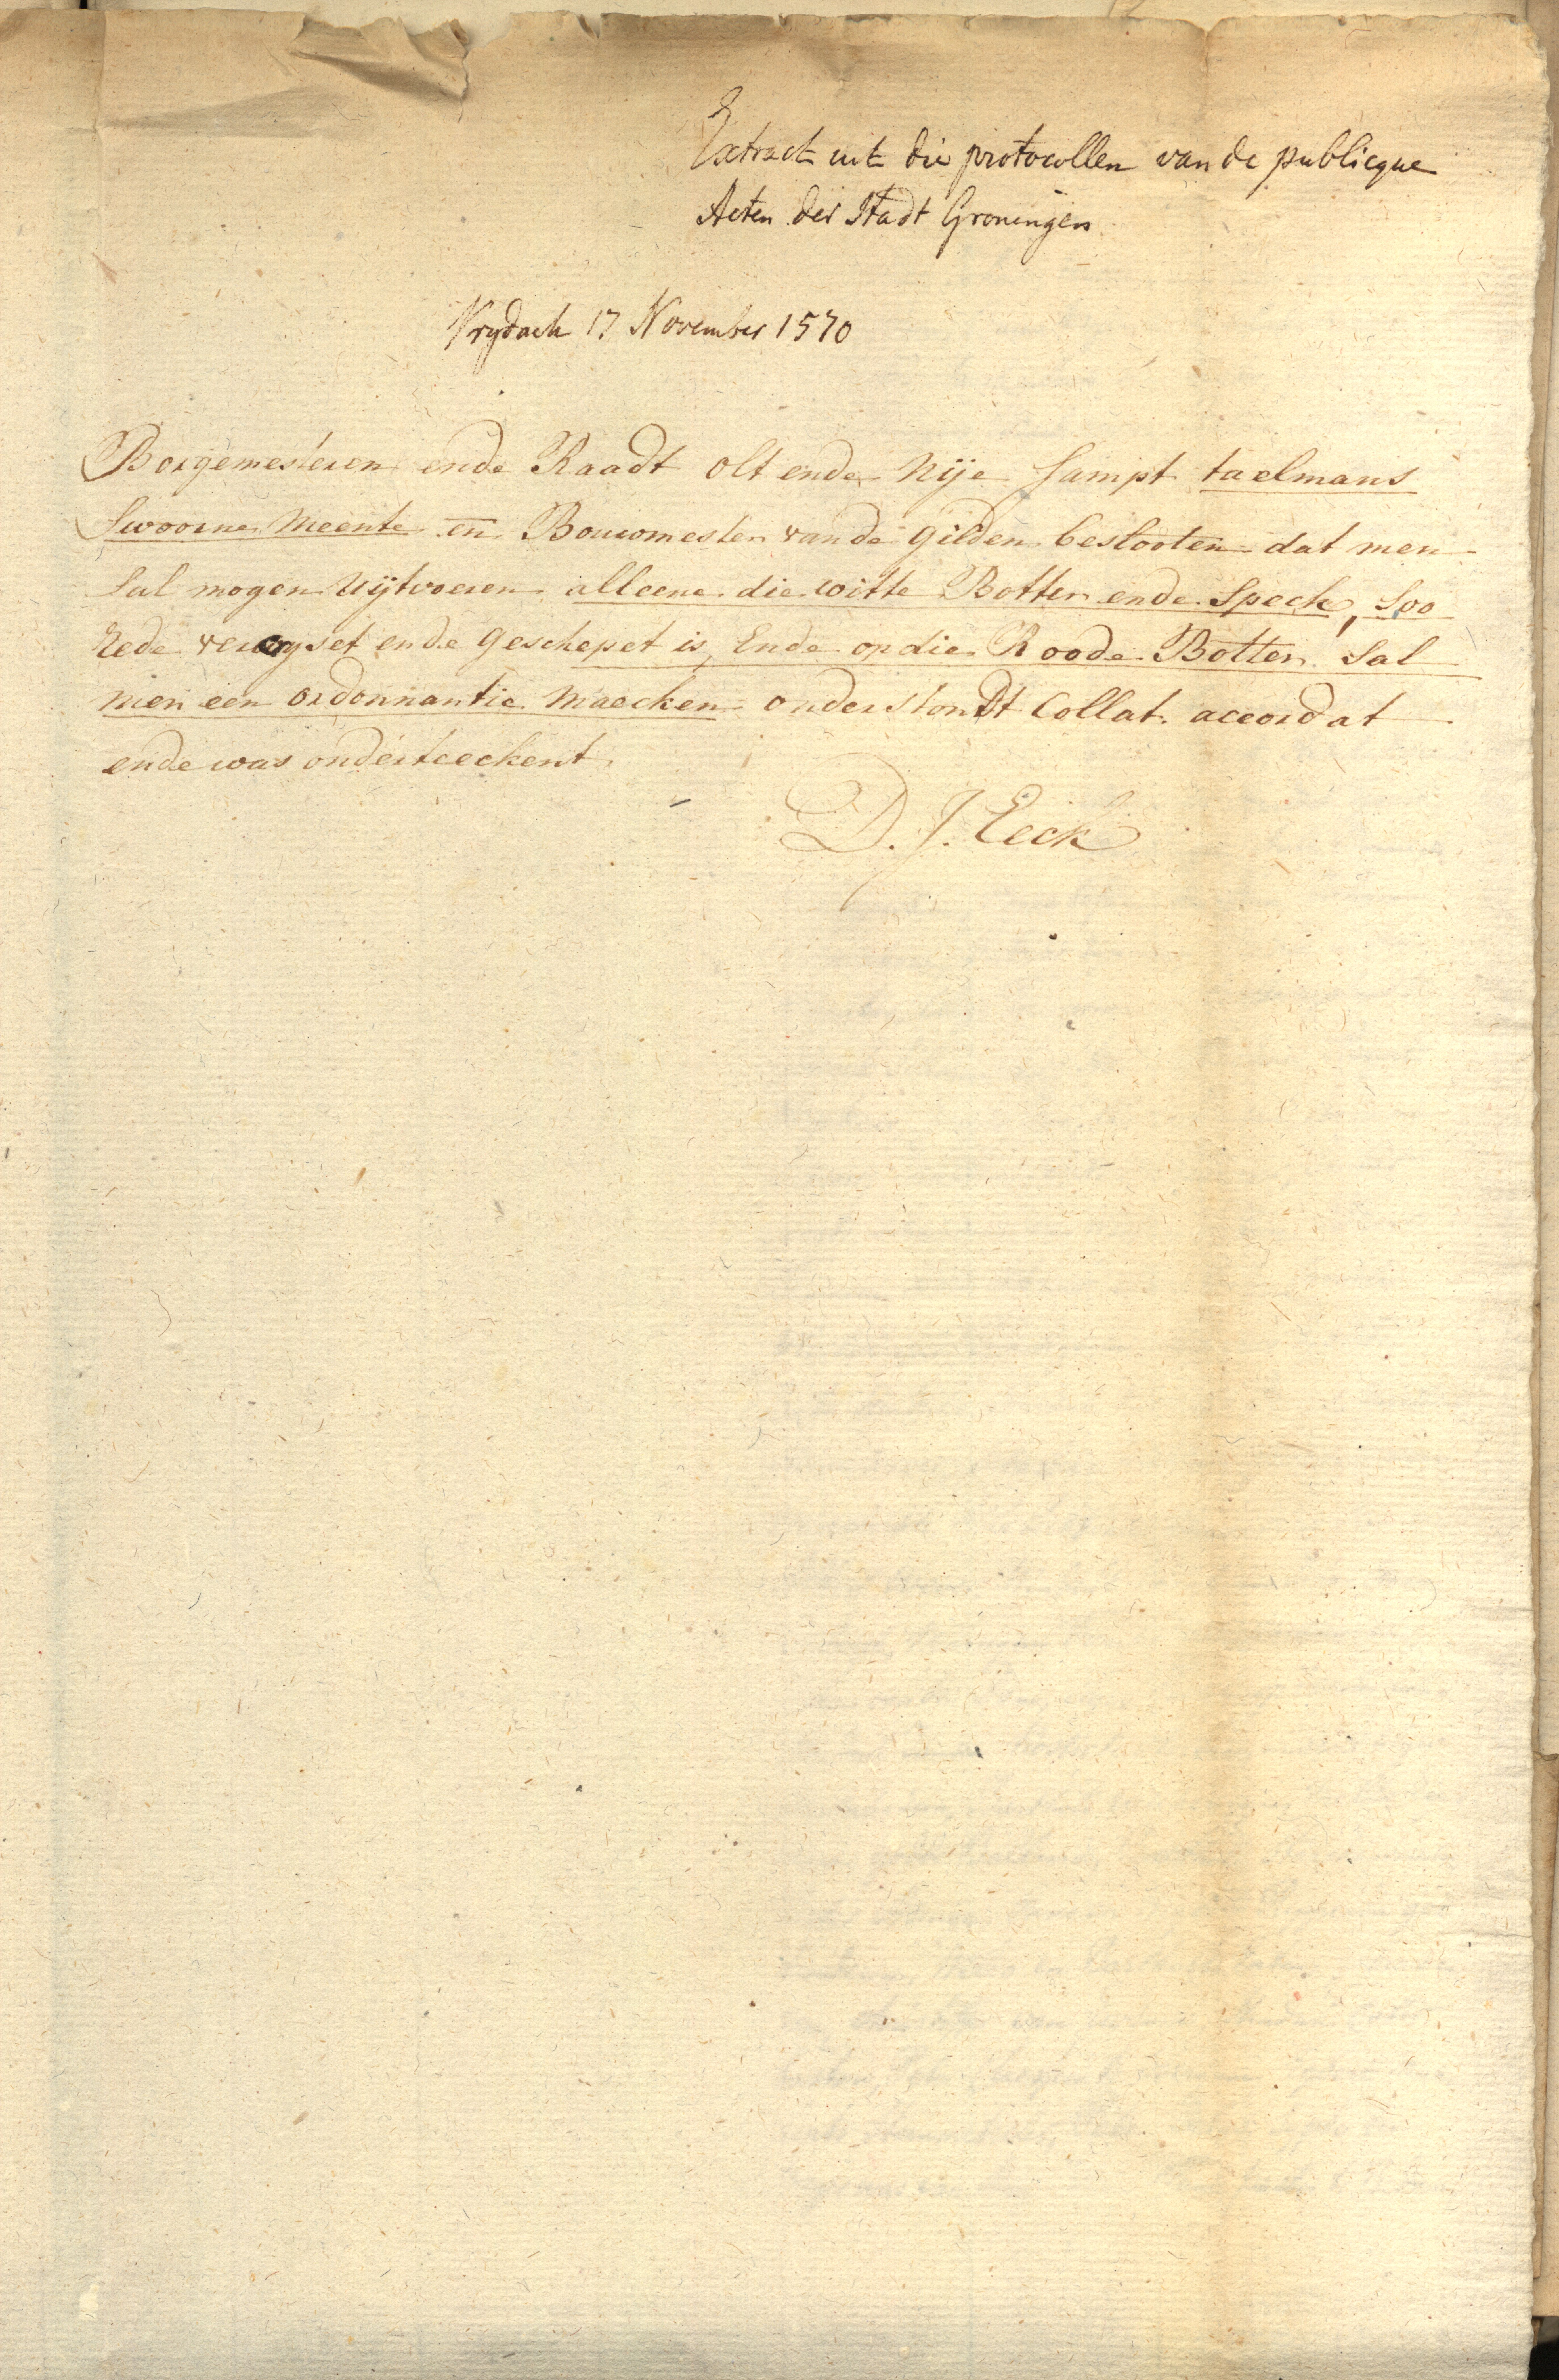 Extract uit die protocollen van de publicque
Acten der Stadt Groningen
Vrydach 17 November 1570
Borgemesteren ende Raadt olt ende Nije sampt taelmans
Swoorne Meente en̄ Bouwmester van de gilden beslooten dat men
sal mogen uijtvoeren alleene die witte Botter ende Speck, Soo
rede ende geschepet is, Ende op die Roode Botter sal
men een ordonnantie maecken onderstondt Collat. accordat
ende was onderteeckent.
D. J. Eeck